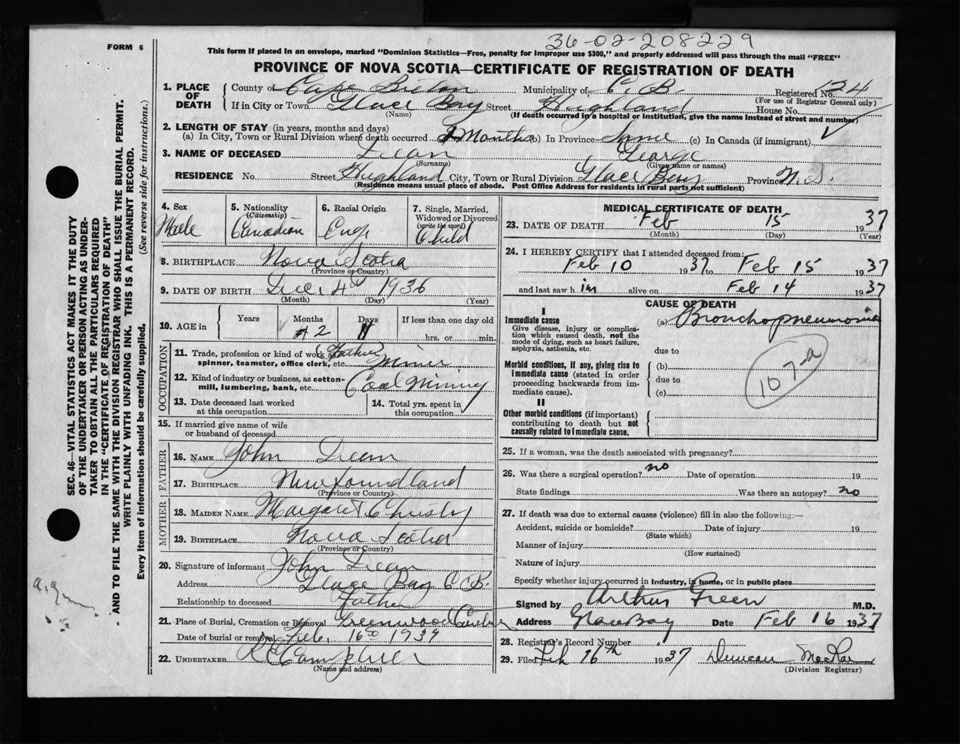 36-02-208229
FORM 6
This form if placed in an envelope, marked "Dominion Statistics—Free, penalty for improper use $300," and properly addressed will pass through the mail "FREE"
PROVINCE OF NOVA SCOTIA—CERTIFICATE OF REGISTRATION OF DEATH
1. PLACE OF DEATH
County of Cape Breton Municipality of C. B. Registered No. 124
(For use of Registrar General only)
If in City or Town Glace Bay Street Highland House No.
(Name) (If death occurred in a hospital or institution, give the name instead of street and number)
2. LENGTH OF STAY (in years, months and days)
(a) In City, Town or Rural Division where death occurred 2 Months (b) In Province Same (c) In Canada (if immigrant)
3. NAME OF DECEASED Dean George
(Surname) (Given name or names)
RESIDENCE No. Street Highland City, Town or Rural Division Glace Bay Province N.S.
(Residence means usual place of abode. Post Office Address for residents in rural parts not sufficient)
4. Sex Male
5. Nationality (Citizenship) Canadian
6. Racial Origin Eng
7. Single, Married, Widowed or Divorced (write the word) Child
8. BIRTHPLACE Nova Scotia
(Province or Country)
9. DATE OF BIRTH Dec. 4th 1936
(Month) (Day) (Year)
10. AGE in Years Months 2 Days 11 If less than one day old
hrs. or min.
OCCUPATION
11. Trade, profession or kind of work as spinner, teamster, office clerk, etc. Father Miner
12. Kind of industry or business, as cotton-mill, lumbering, bank, etc. Coal Mining
13. Date deceased last worked at this occupation
14. Total yrs. spent in this occupation
15. If married give name of wife or husband of deceased
FATHER
16. NAME John Dean
17. BIRTHPLACE Newfoundland
(Province or Country)
MOTHER
18. MAIDEN NAME Margaret
19. BIRTHPLACE Nova Scotia
(Province or Country)
20. Signature of informant John Dean
Address Glace Bay C.B.
Relationship to deceased Father
21. Place of Burial, Cremation or Removal Greenwood
Date of burial or removal Feb. 16th 1937
22. UNDERTAKER
(Name and address)
MEDICAL CERTIFICATE OF DEATH
23. DATE OF DEATH Feb 15 1937
(Month) (Day) (Year)
24. I HEREBY CERTIFY that I attended deceased from:
Feb 10 1937 to Feb 15 1937
and last saw him alive on Feb 14 1937
CAUSE OF DEATH
I
Immediate cause (a) Bronchopneumonia
Give disease, injury or complication which caused death, not the mode of dying, such as heart failure, asphyxia, asthenia, etc.
due to
Morbid conditions, if any, giving rise to immediate cause (stated in order proceeding backwards from immediate cause).
(b)
due to
(c)
107a
II
Other morbid conditions (if important) contributing to death but not causally related to immediate cause.
25. If a woman, was the death associated with pregnancy?
26. Was there a surgical operation? no Date of operation 19
State findings Was there an autopsy? no
27. If death was due to external causes (violence) fill in also the following:—
Accident, suicide or homicide? Date of injury 19
(State which)
Manner of injury
(How sustained)
Nature of injury
Specify whether injury occurred in industry, in home, or in public place
Signed by Arthur Green M.D.
Address Glace Bay Date Feb 16 1937
28. Registrar's Record Number
29. Filed Feb 16th 1937 Duncan
(Division Registrar)
SEC. 46—VITAL STATISTICS ACT MAKES IT THE DUTY
OF THE UNDERTAKER OR PERSON ACTING AS UNDER-
TAKER TO OBTAIN ALL THE PARTICULARS REQUIRED
IN THE "CERTIFICATE OF REGISTRATION OF DEATH"
AND TO FILE THE SAME WITH THE DIVISION REGISTRAR WHO SHALL ISSUE THE BURIAL PERMIT.
WRITE PLAINLY WITH UNFADING INK. THIS IS A PERMANENT RECORD.
Every item of information should be carefully supplied. (See reverse side for instructions.)